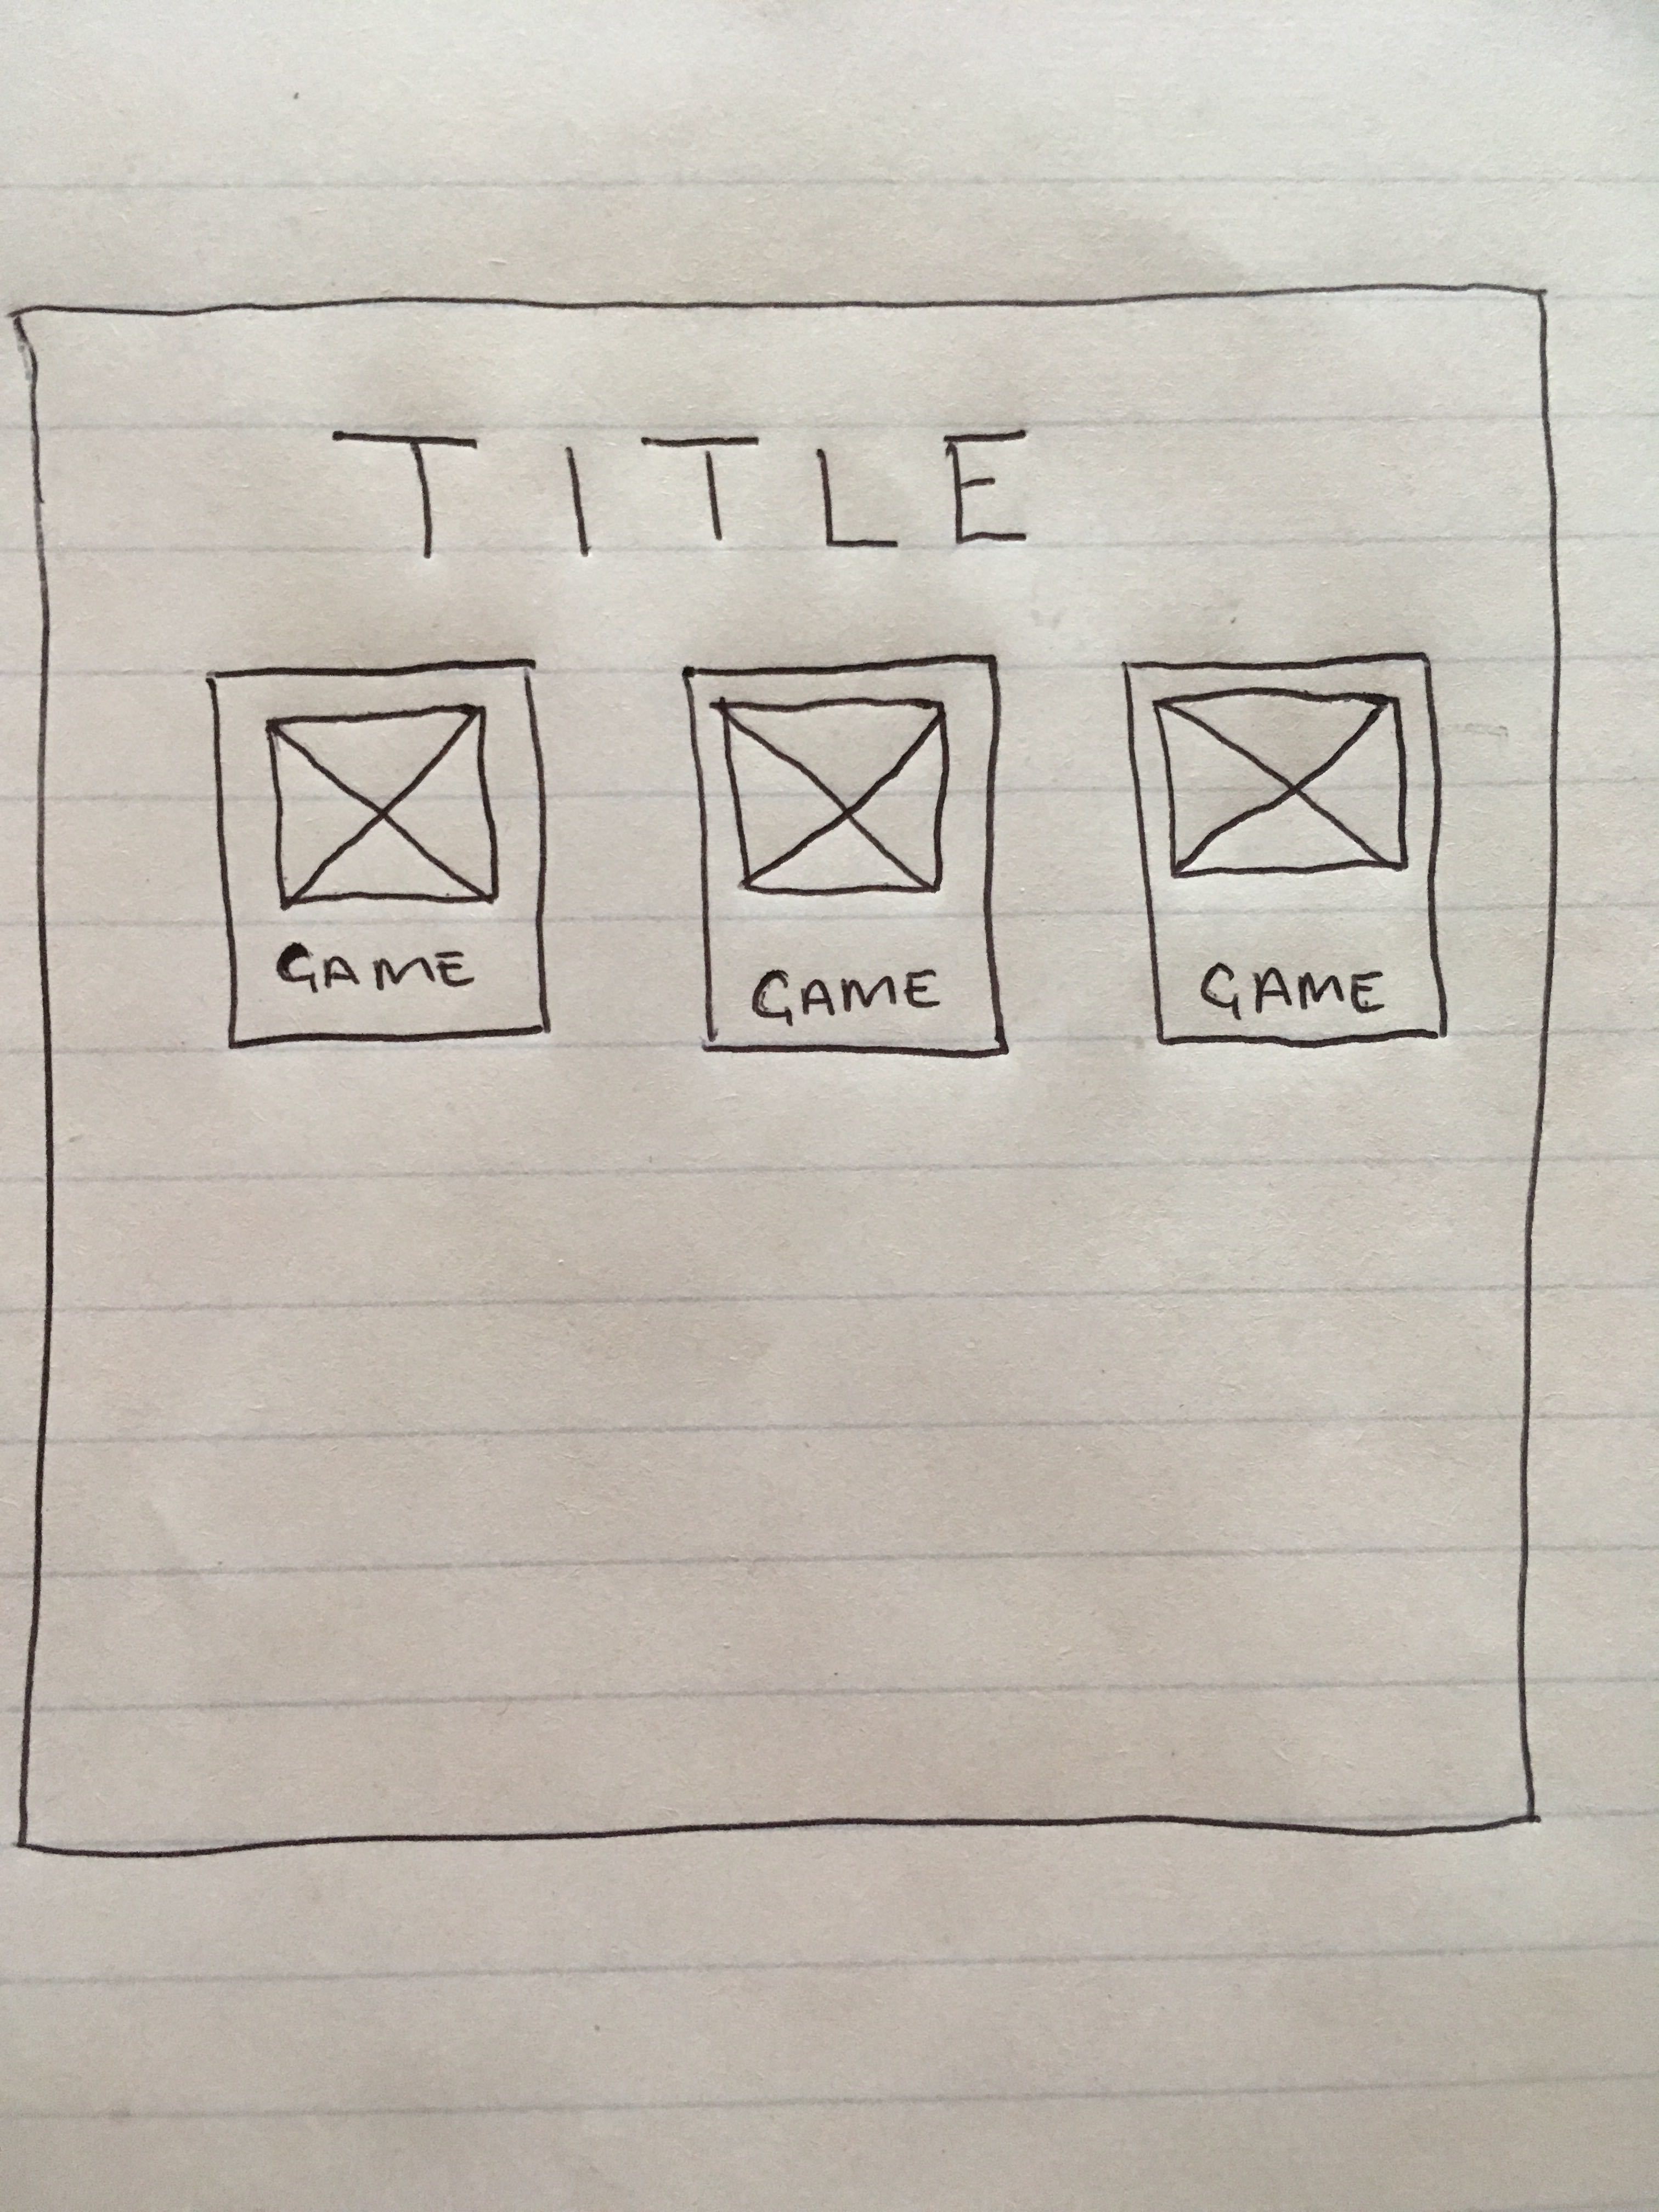 TITLE
GAME GAME GAME